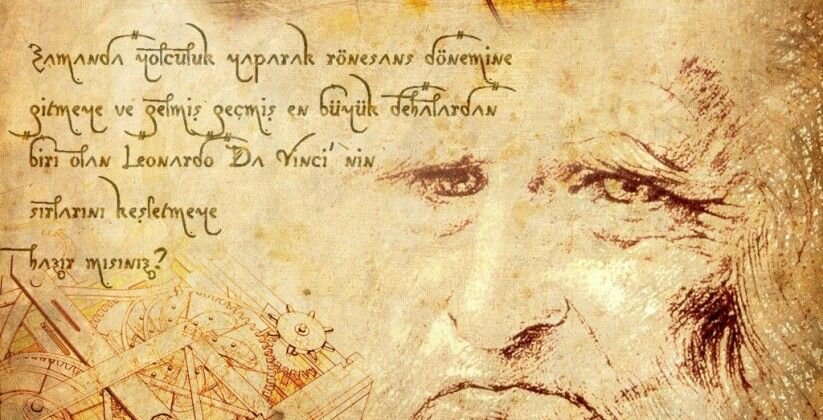 Zamanda yolculuk yaparak rönesans dönemine
gitmeye ve gelmiş geçmiş en büyük dehalardan
biri olan Leonardo Da Vinci'nin
sırlarını keşfetmeye
hazır mısınız?